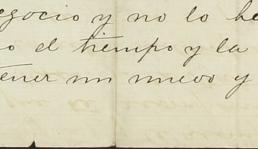 egocio y no lo he
o el tiempo y la
tener un nuevo y